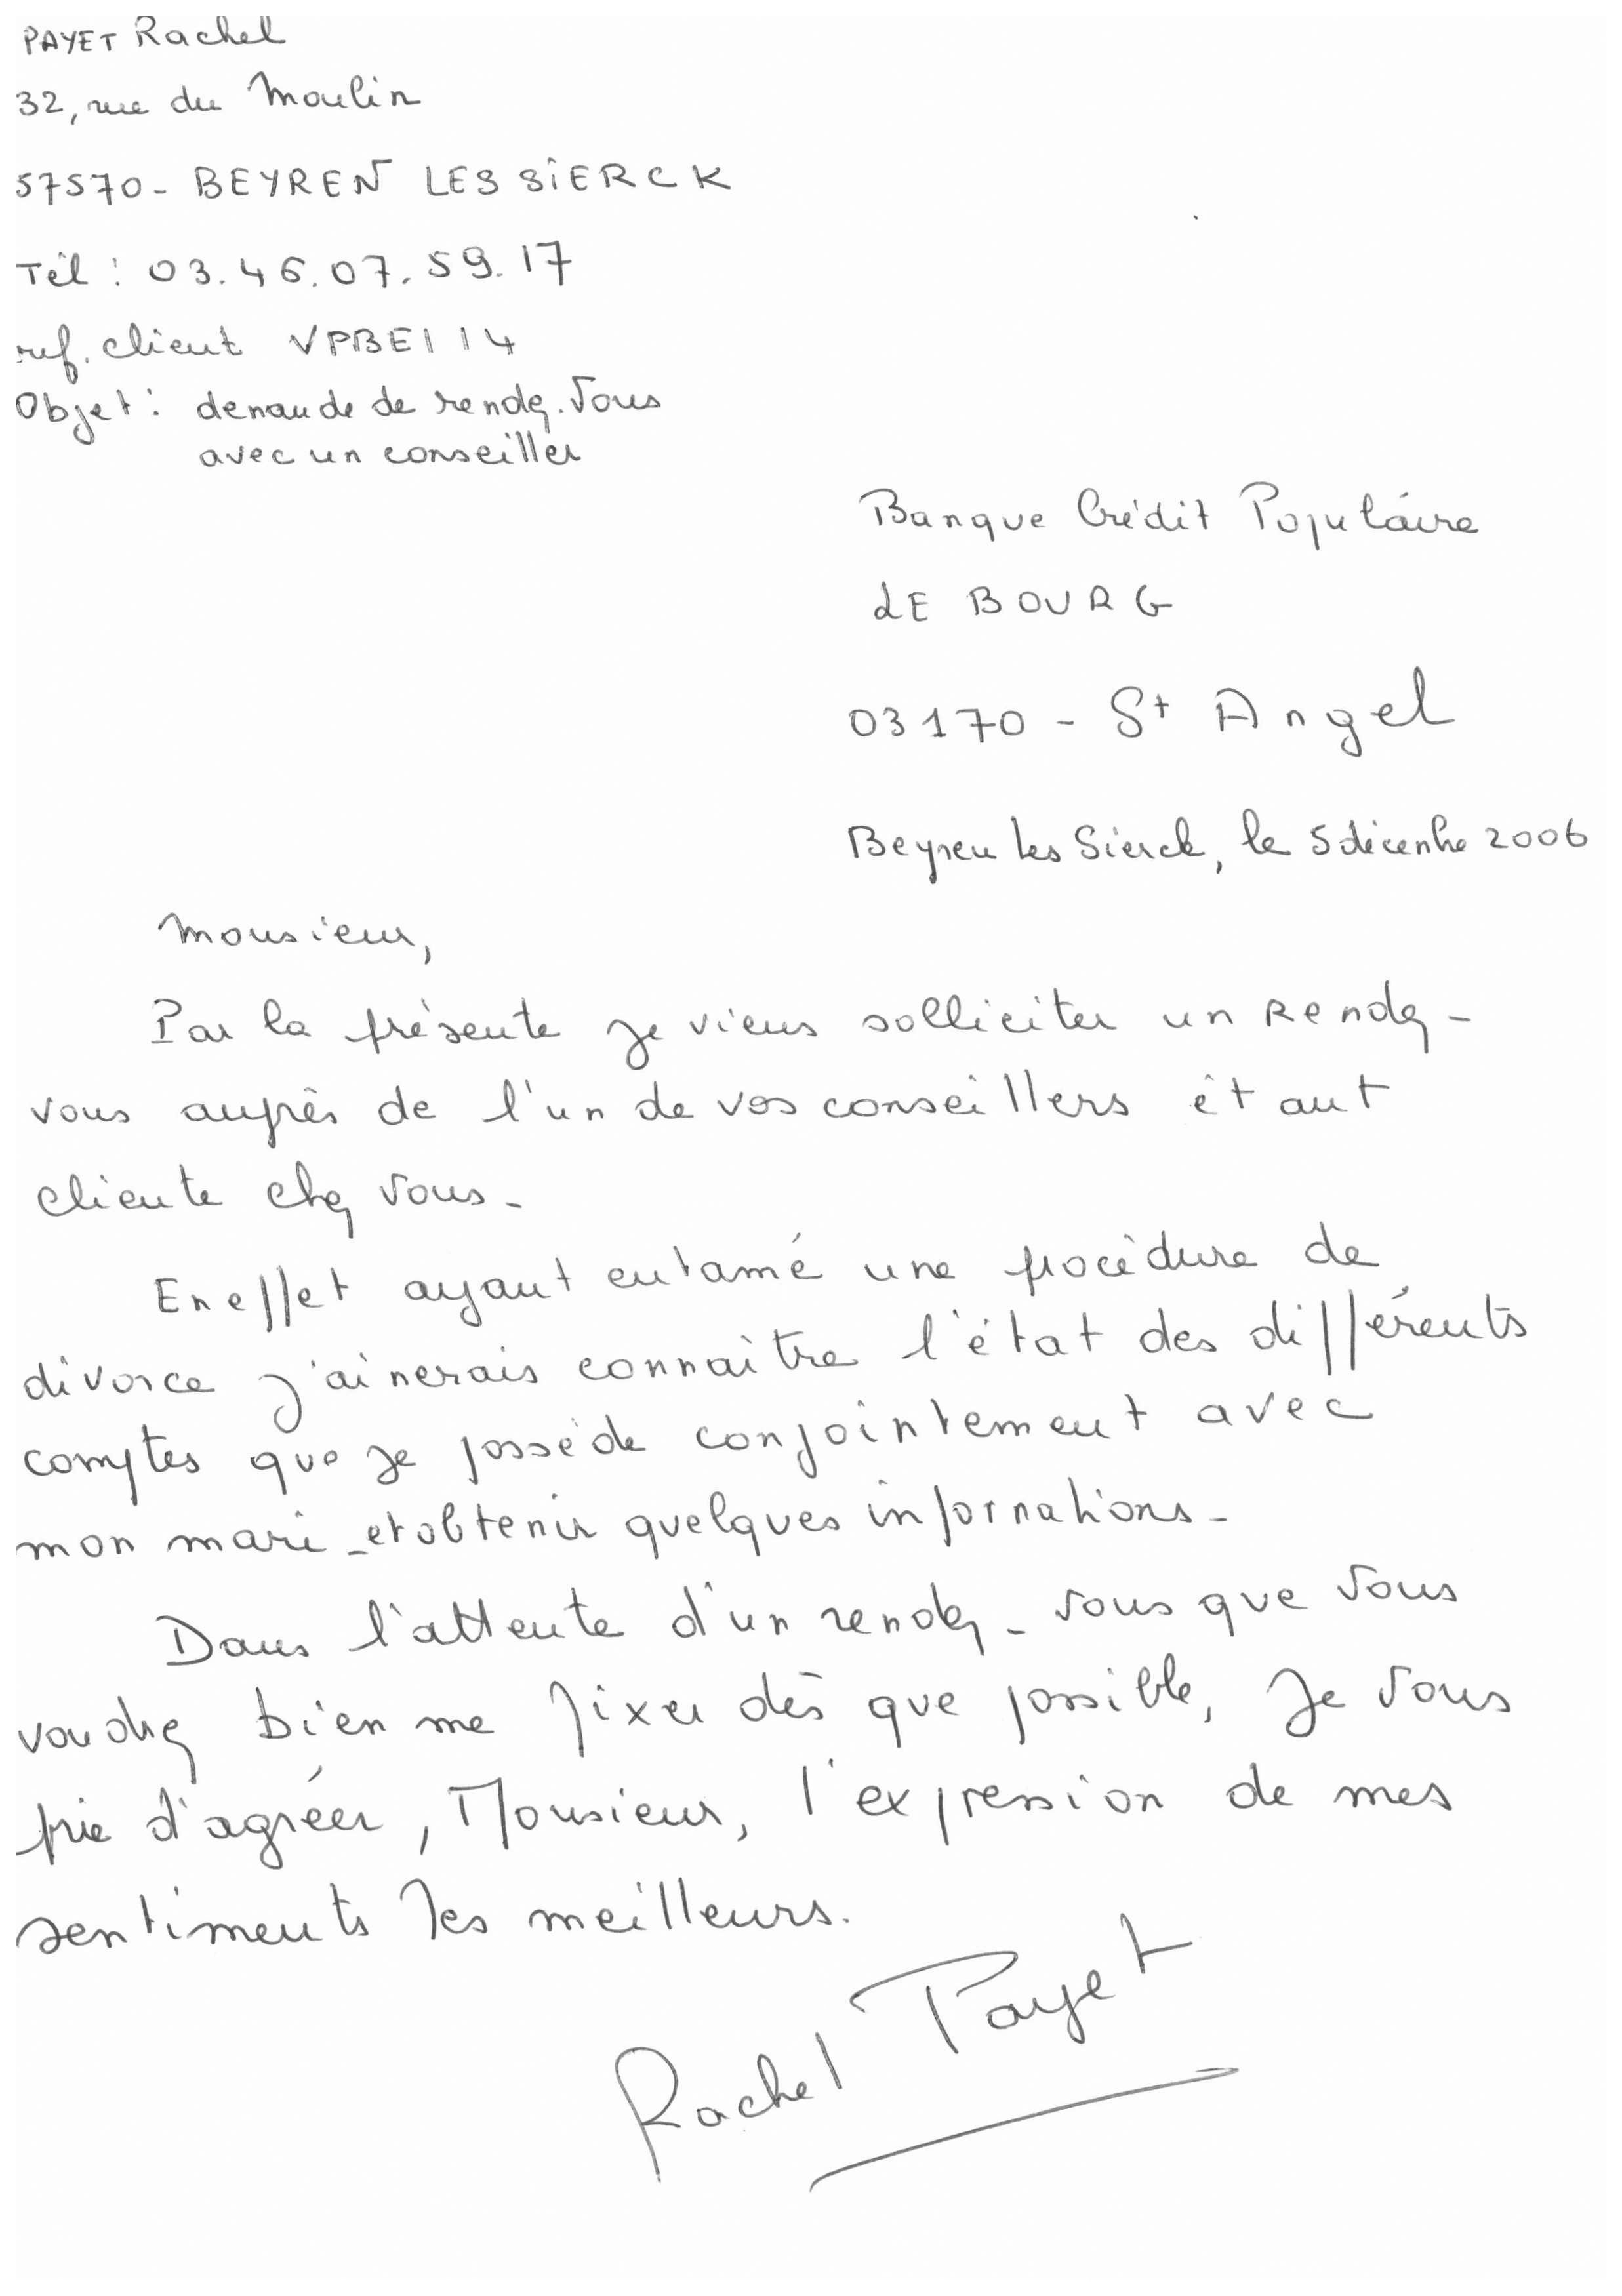 PAYET Rachel
32, rue du Moulin
57570 - BEYREN LES SIERCK
Tél : 03.46.07.59.17
ref. client VPBE114
Objet : demande de rendez-vous
avec un conseiller
Banque Crédit Populaire
LE BOURG
03170 - St Angel
Beyren Les Sierck, le 5 décembre 2006
Monsieur,
Par la présente je viens solliciter un Rendez-
vous auprès de l'un de vos conseillers étant
cliente chez vous.
En effet ayant entamé une procédure de
divorce j'aimerais connaître l'état des différents
comptes que je possède conjointement avec
mon mari et obtenir quelques informations.
Dans l'attente d'un rendez-vous que vous
voudrez bien me fixer dès que possible, Je vous
prie d'agréer, Monsieur, l'expression de mes
sentiments les meilleurs.
Rachel Payet